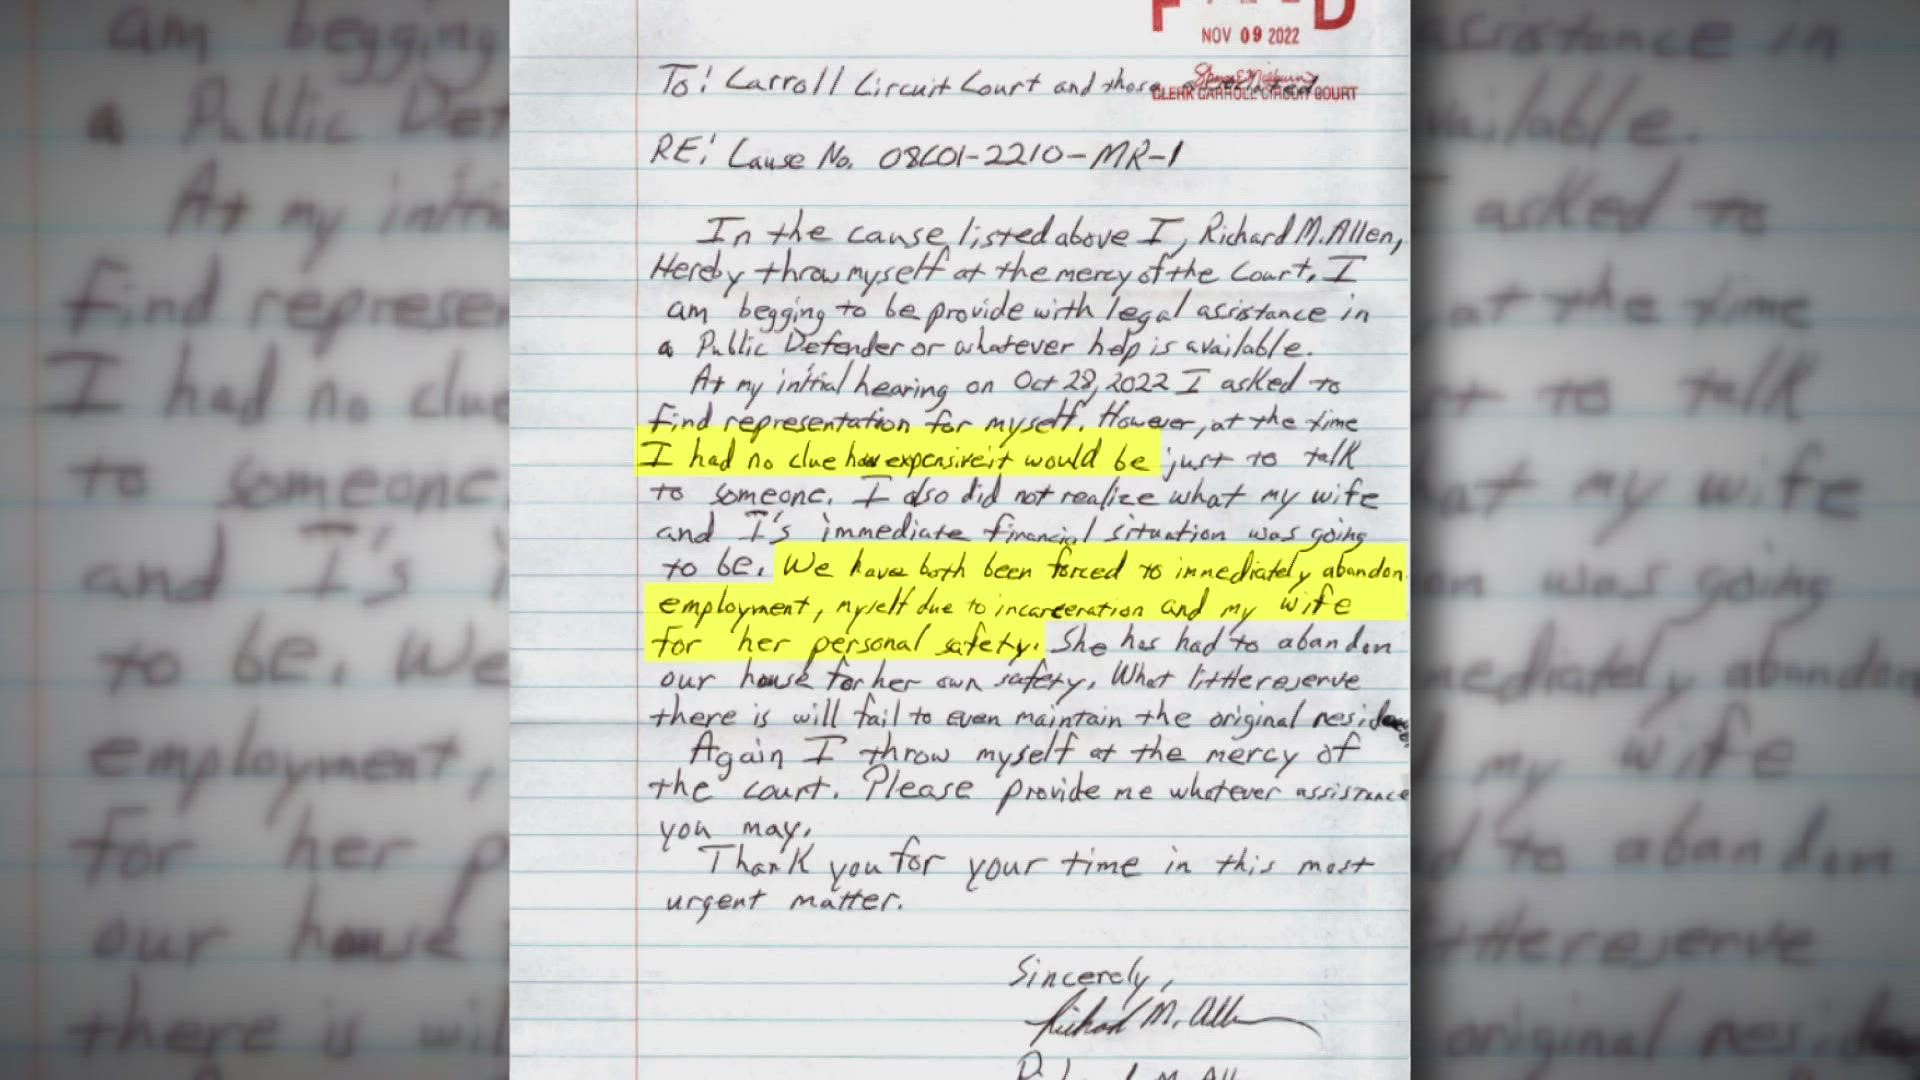 NOV 09 2022
To: Carroll Circuit Court and those
CLERK CARROLL CIRCUIT COURT
RE: Cause No. 08C01-2210-MR-1
In the cause listed above I, Richard M. Allen,
Hereby throw myself at the mercy of the Court. I
am begging to be provide with legal assistance in
a Public Defender or whatever help is available.
At my initial hearing on Oct 28, 2022 I asked to
find representation for myself. However, at the time
I had no clue how expensive it would be just to talk
to someone. I also did not realize what my wife
and I's immediate financial situation was going
to be. We have both been forced to immediately abandon
employment, myself due to incarceration and my wife
for her personal safety. She has had to abandon
our house for her own safety. What little reserve
there is will fail to even maintain the original residence.
Again I throw myself at the mercy of
the court. Please provide me whatever assistance
you may.
Thank you for your time in this most
urgent matter.
Sincerely,
Richard M. Allen